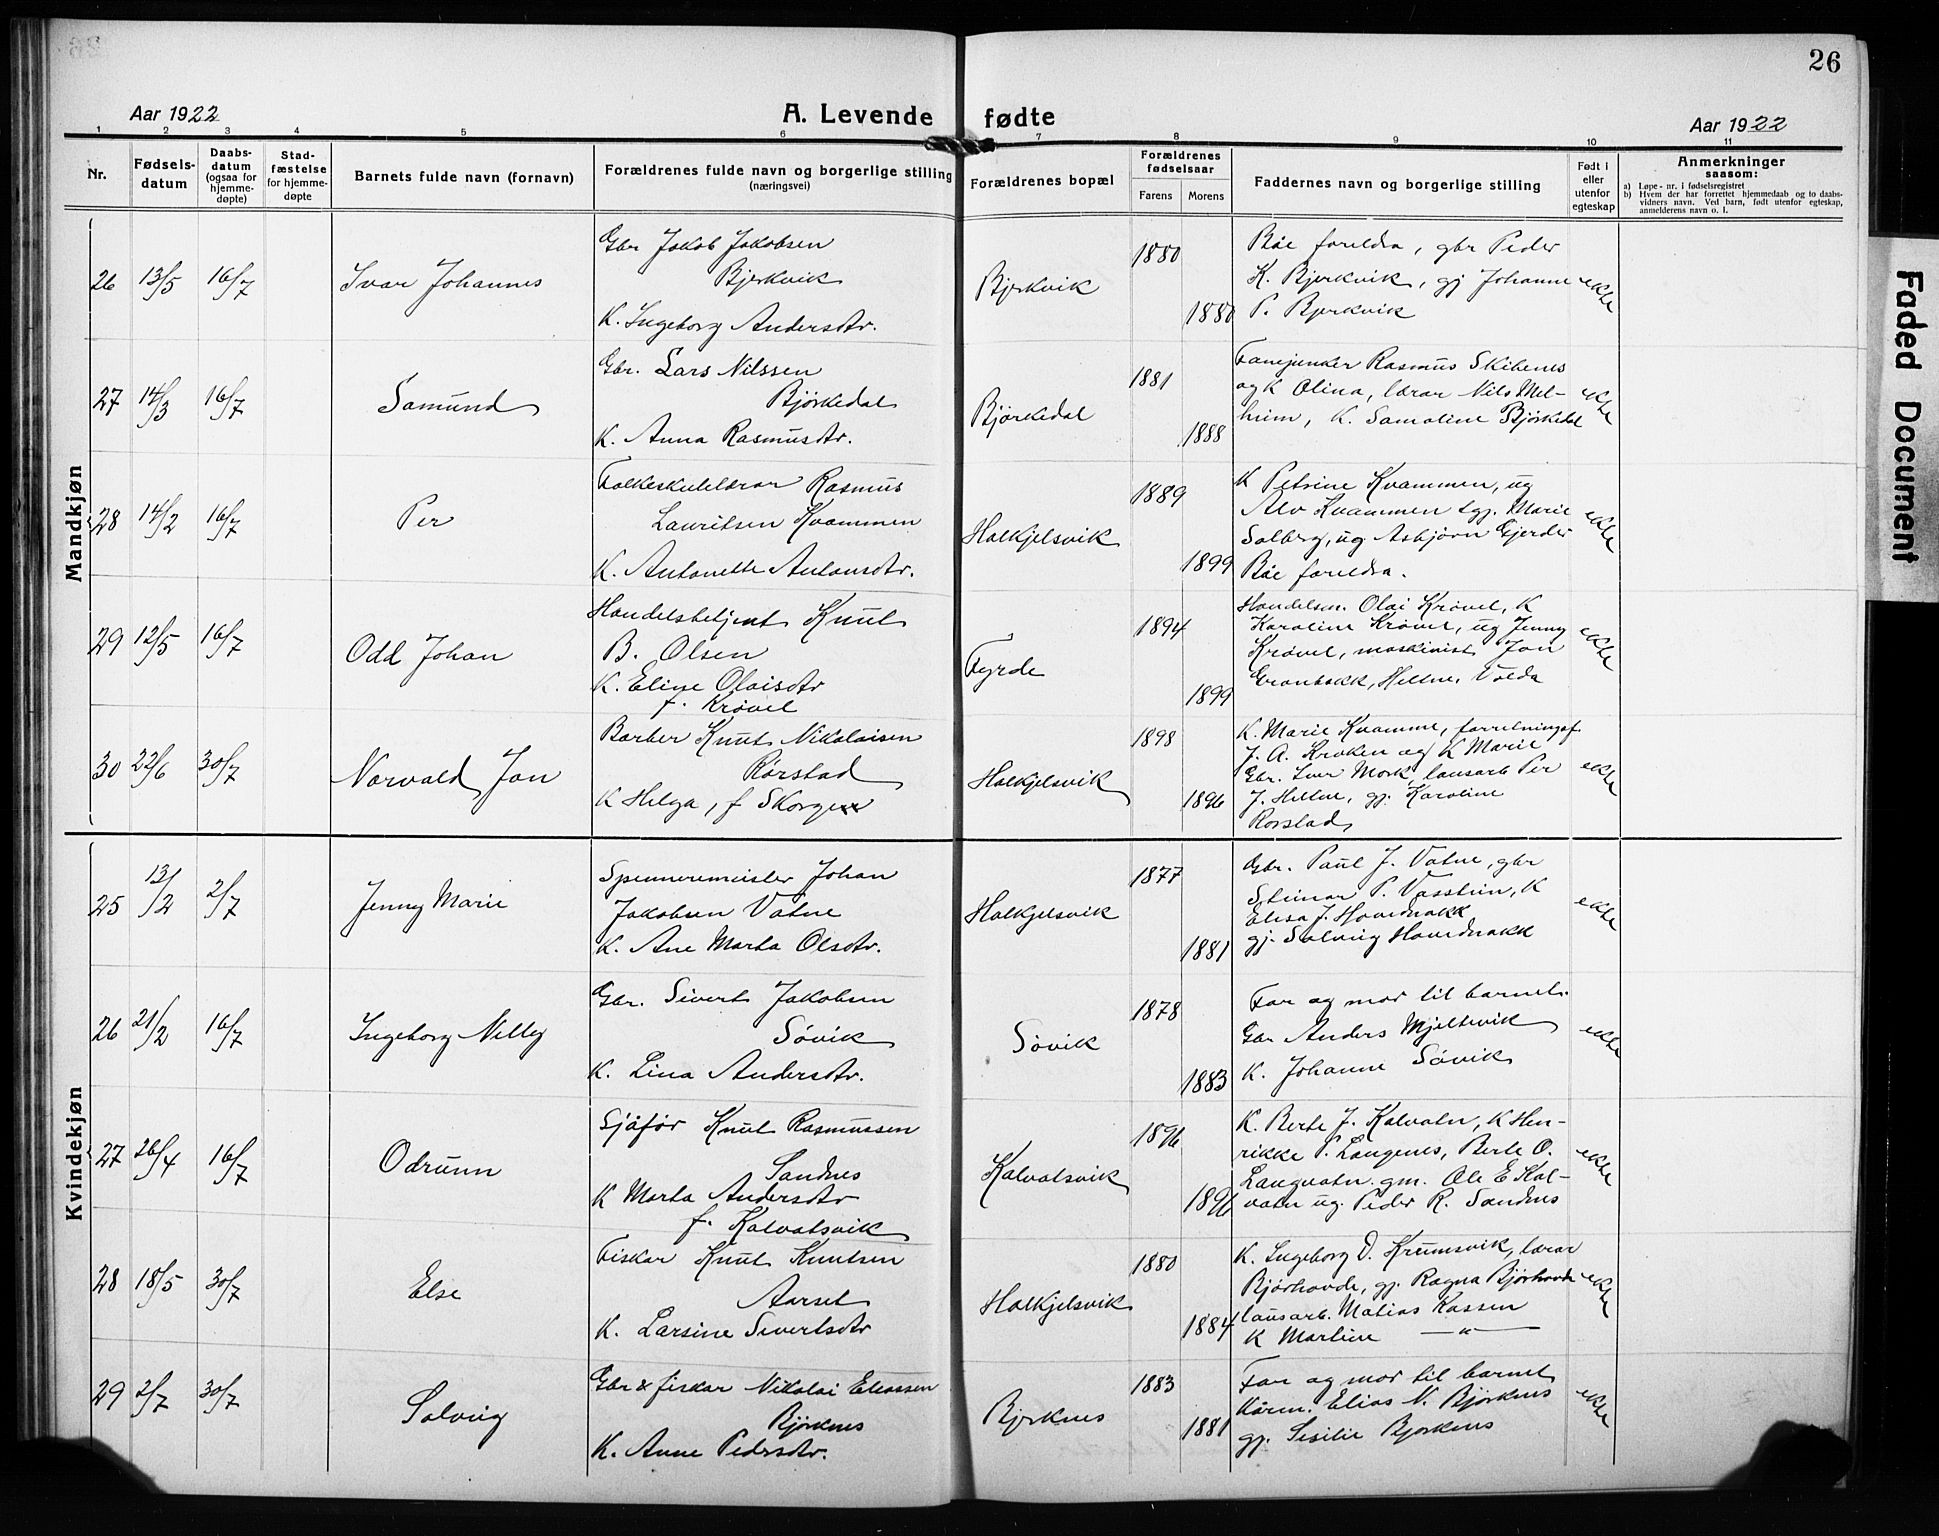 26
Aar 1922
A. Levende fødte
Aar 1922
1 2 3 4 5 6 7 8 9 10 11
Nr.
Fødsels-
datum
Daabs-
datum
(ogsaa for
hjemme-
døpte)
Stad-
fæstelse
for hjemme-
døpte
Barnets fulde navn (fornavn)
Forældrenes fulde navn og borgerlige stilling
(næringsvei)
Forældrenes bopæl
Forældrenes
fødselsaar
Farens Morens
Faddernes navn og borgerlige stilling
Født i
eller
utenfor
egteskap
Anmerkninger
saasom:
a) Løpe-nr. i fødselsregistret
b) Hvem der har forrettet hjemmedaab og to daabs-
vidners navn. Ved barn, født utenfor egteskap,
anmelderens navn o. l.
Mandkjøn
26 13/5 16/7 Ivar Johannes
Gbr Jakob Jakobsen
Bjerkvik
K. Ingeborg Andersdtr.
Bjerkvik
1880
1880
Båe foreldra, gbr Peder
K. Bjerkvik, gj Johanne
P. Bjerkvik
ekte
27 14/3 16/7 Samund
Gbr. Lars Nilssen
Bjørkedal
K. Anna Rasmusdtr.
Bjørkedal
1881
1888
Fanejunker Rasmus Skibenes
og K Olina, lærar Nils Mel-
heim, K. Samoline Bjørkedal
ekte
28 14/2 16/7 Per
Folkeskulelærar Rasmus
Lauritsen Kvammen
K. Antonette Antonsdtr.
Halkjelsvik
1889
1899
K Petrine Kvammen, ug
Alv Kvammen tgj. Marie
Solberg, ug Asbjørn Gjerde
Båe foreldra.
ekte
29 12/5 16/7 Odd Johan
Handelsbetjent Knut
B. Olsen
K. Eline Olaisdtr
f. Krøvel
Fyrde
1894
1899
Handelsm. Olai Krøvel, K
Karoline Krøvel, ug Jenny
Krøvel, maskinist Jon
Grønbakk, Heltne, Volda
ekte
30 22/6 30/7 Norvald Jon
Barber Knut Nikolaisen
Rørstad
K Helga, f Skorgen
Halkjelsvik
1898
1896
K. Marie Kvamme, forretningsf.
J. A. Kroken og K Marie
Gbr. Iver Mork, lausarb Per
J. Heltne, gj. Karoline
Rørstad
ekte
Kvindekjøn
25 13/2 2/7 Jenny Marie
Spennemeister Johan
Jakobsen Vatne
K. Ane Marta Olsdtr.
Halkjelsvik
1877
1881
Gbr. Paul J. Vatne, gbr
Steinar P. Vasstein, K
Elisa J. Hovednakk
gj. Solveig Hovednakk
ekte
26 21/2 16/7 Ingeborg Nelly
Gbr. Sivert Jakobsen
Søvik
K. Lina Andersdtr.
Søvik
1878
1883
Far og mor til barnet.
Gbr Anders Mjeltevik
K. Johanne Søvik
ekte
27 26/4 16/7 Odrunn
Sjåfør Knut Rasmussen
Sandnes
K Marta Andersdtr
f. Kalvatsvik
Kalvatsvik
1896
1896
K. Berte J. Kalvatn, K Hen-
rikke P. Langenes, Berte O.
Langvatn. gm. Ole E Kal-
vatn ug. Peder R. Sandnes
ekte
28 18/5 30/7 Else
Fiskar Knut Knutsen
Aarset
K. Larsine Sivertsdtr
Halkjelsvik
1880
1884
K. Ingeborg D. Krumsvik, lærar
Bjørhovde, gj. Ragna Bjørhovde
lausarb. Matias Kassen
K Martine — " —
ekte
29 2/7 30/7 Solveig
Gbr & fiskar Nikolai Eliassen
Bjørknes
K. Anne Pedersdtr.
Bjerknes
1883
1881
Far og mor til barnet
Kårm. Elias N. Bjørknes
gj. Sesilie Bjørknes
ekte
Faded Document